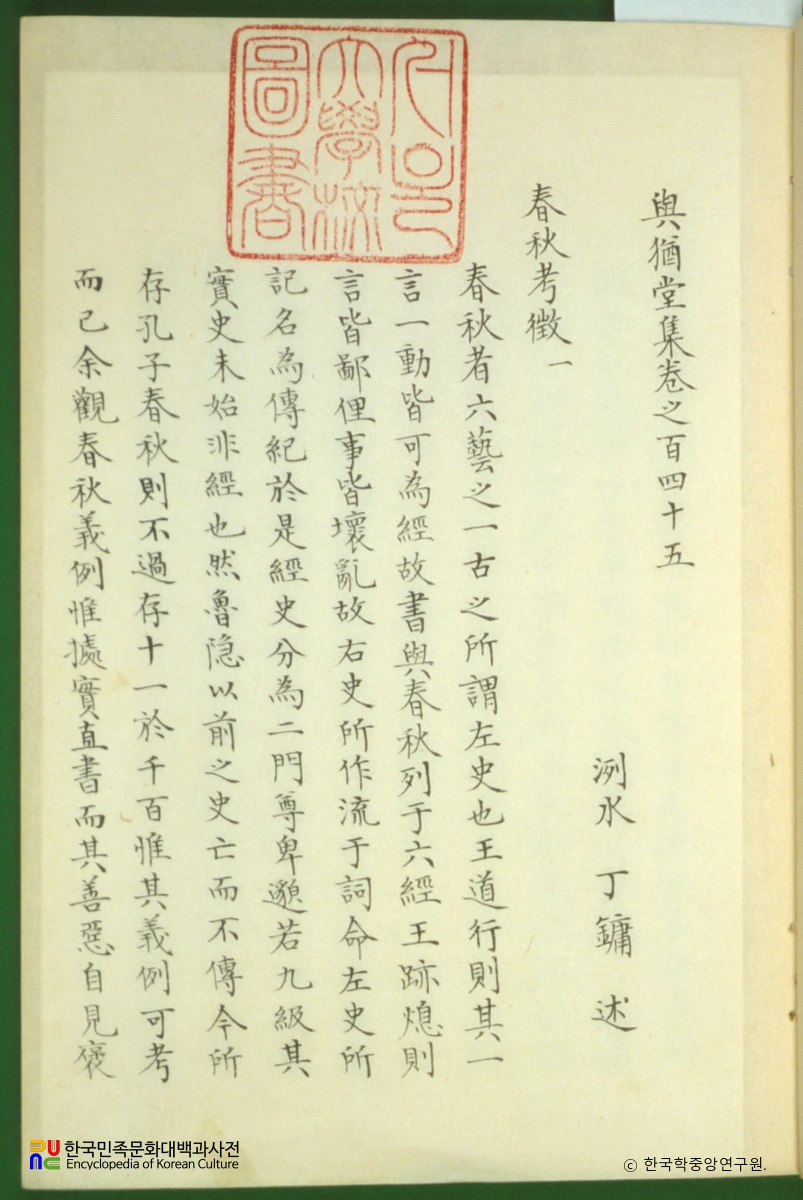 서울
大學校
圖書
與猶堂集卷之百四十五
洌水 丁鏞 述
春秋考徵一
春秋者六藝之一古之所謂左史也王道行則其一
言一動皆可為經故書與春秋列于六經王跡熄則
言皆鄙俚事皆壞亂故右史所作流于詞命左史所
記名為傳紀於是經史分為二門尊卑邈若九級其
實史未始非經也然魯隐以前之史亡而不傳今所
存孔子春秋則不過存十一於千百惟其義例可考
而已余觀春秋義例惟據實直書而其善惡自見褒
한국민족문화대백과사전
Encyclopedia of Korean Culture
ⓒ 한국학중앙연구원.